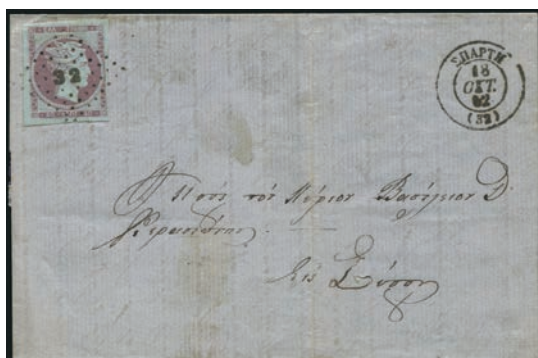 32
ΣΠΑΡΤΗ
18
ΟΚΤ.
62
(32)
Πρὸς τὸν Κύριον Βασίλειον Δ.
Εἰς Σύρον